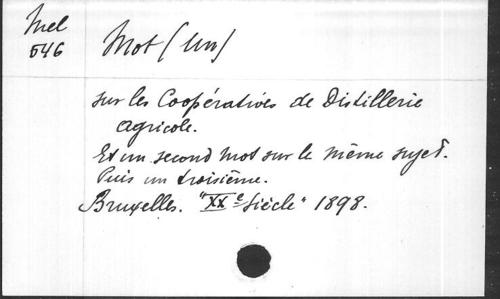 Mel
546
Mot (Un)
sur les Coopératives de Distillerie
agricole.
Et un second mot sur le même sujet.
Puis un troisième.
Bruxelles. "XXe Siècle" 1898.